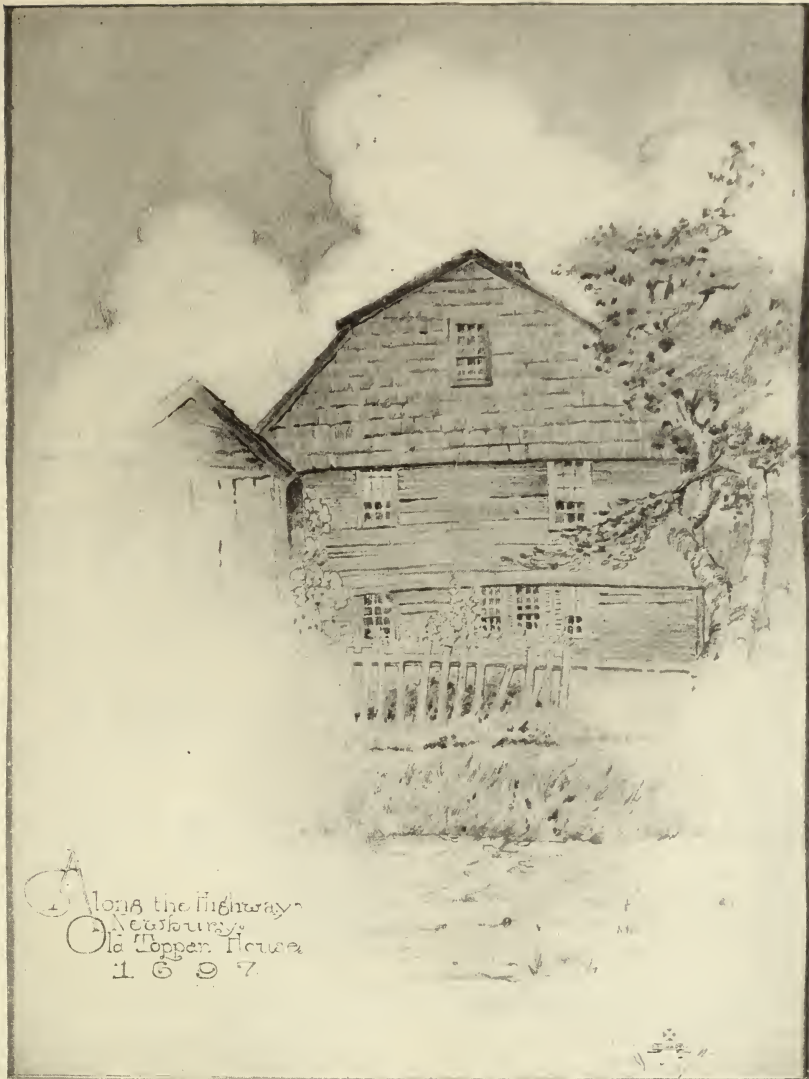 Along the Highway
Newbury.
Old Toppan House,
1697